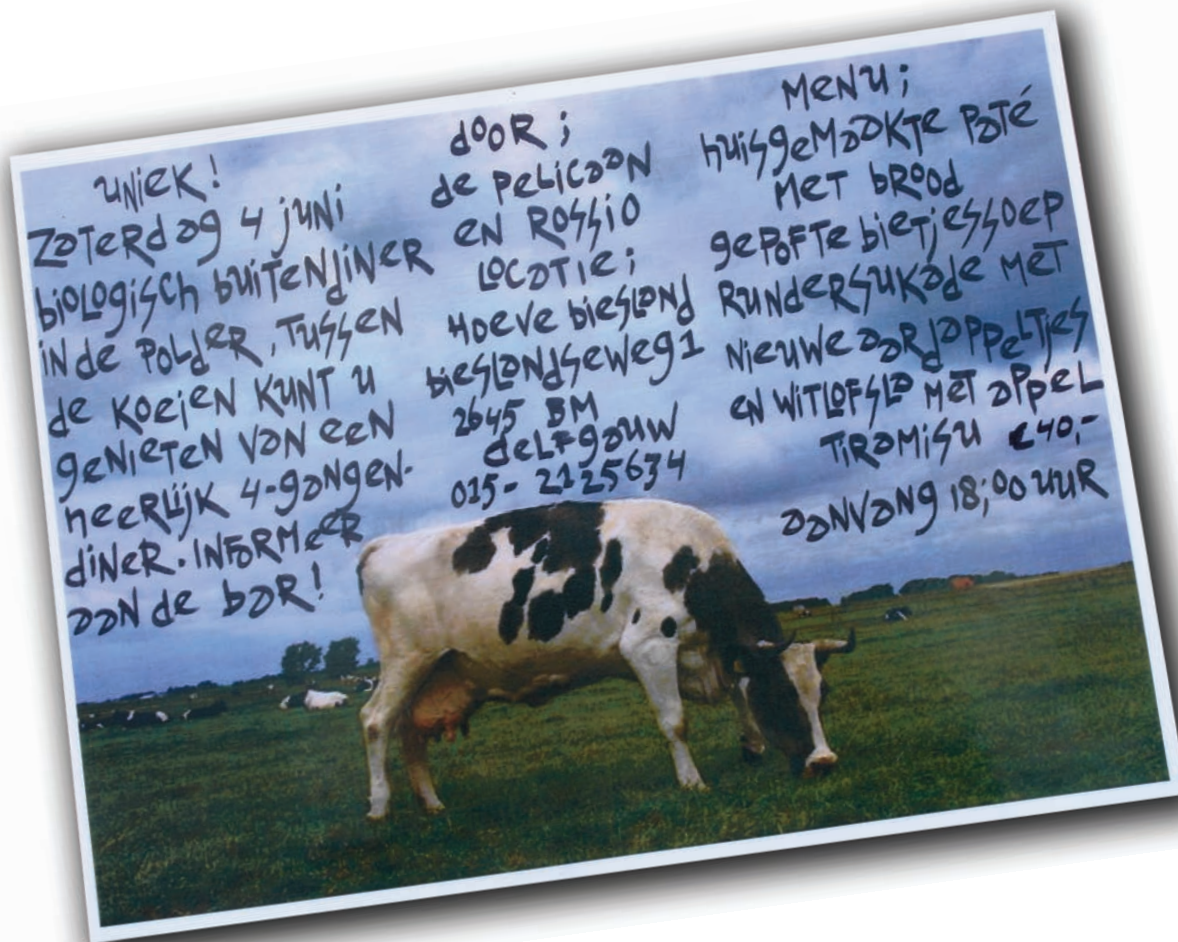 uniek!
zaterdag 4 juni
biologisch buitendiner
in de polder, tussen
de koeien kunt u
genieten van een
heerlijk 4-gangen-
diner. informeer
aan de bar!
door;
de pelicaan
en Rossio
locatie;
Hoeve biesland
bieslandseweg 1
2645 BM
delfgauw
015-2125634
Menu;
huisgemaakte paté
met brood
gepofte bietjessoep
Rundersukade met
nieuwe aardappeltjes
en witlofsla met appel
tiramisu €40,-
aanvang 18;00 uur